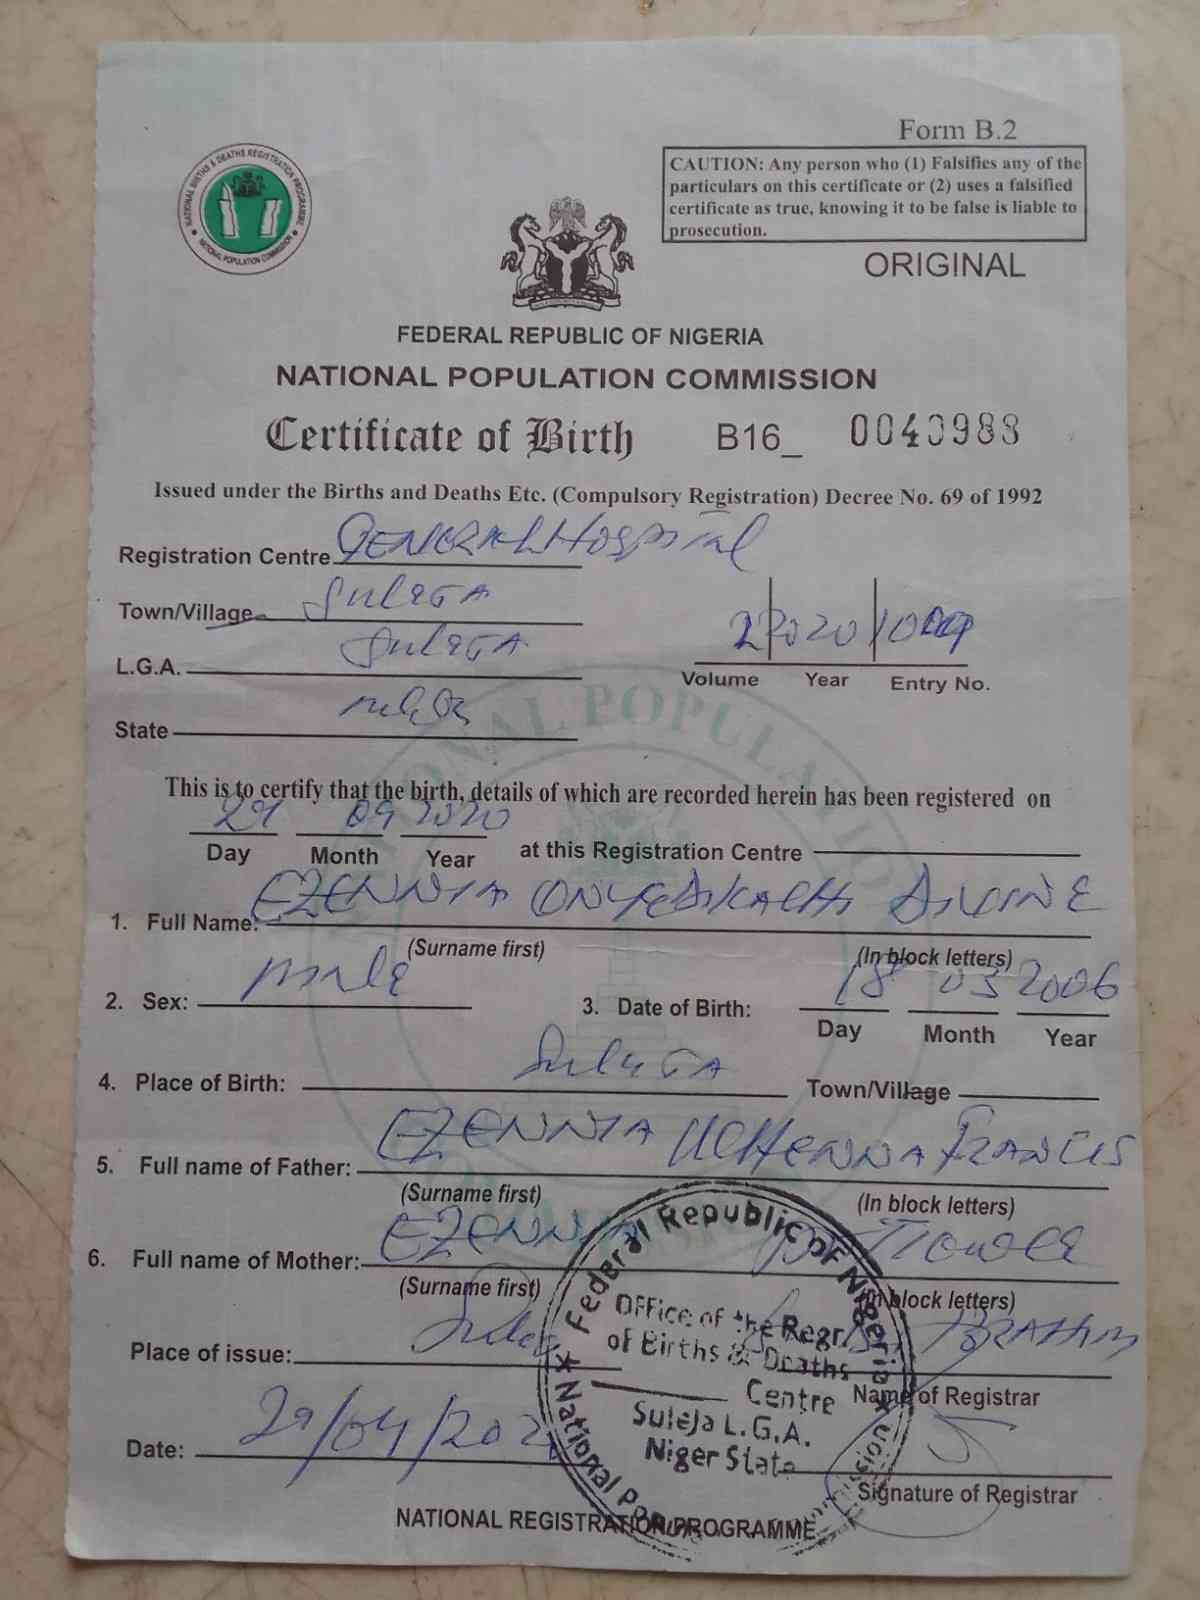 NATIONAL BIRTHS & DEATHS REGISTRATION PROGRAMME
NATIONAL POPULATION COMMISSION
Form B.2
CAUTION: Any person who (1) Falsifies any of the
particulars on this certificate or (2) uses a falsified
certificate as true, knowing it to be false is liable to
prosecution.
ORIGINAL
FEDERAL REPUBLIC OF NIGERIA
NATIONAL POPULATION COMMISSION
Certificate of Birth B16_ 0040988
Issued under the Births and Deaths Etc. (Compulsory Registration) Decree No. 69 of 1992
Registration Centre GENERAL Hospital
Town/Village SULEJA
L.G.A. SULEJA
2 2020
Volume Year Entry No.
State
This is to certify that the birth, details of which are recorded herein has been registered on
29 09 2020
Day Month Year at this Registration Centre
1. Full Name: EZENNIA ONYEDIKACHI DIVINE
(Surname first) (In block letters)
2. Sex: male 3. Date of Birth: 18 03 2006
Day Month Year
4. Place of Birth: SULEJA Town/Village
5. Full name of Father: EZENNIA UCHENNA FRANCIS
(Surname first) (In block letters)
6. Full name of Mother: EZENNIA
(Surname first) (In block letters)
Place of issue: Suleja IBRAHIM
Name of Registrar
Date: 29/04/202
Signature of Registrar
NATIONAL REGISTRATION PROGRAMME
Federal Republic of Nigeria
Office of the Regr.
of Births & Deaths
Centre
Suleja L.G.A.
Niger State
National